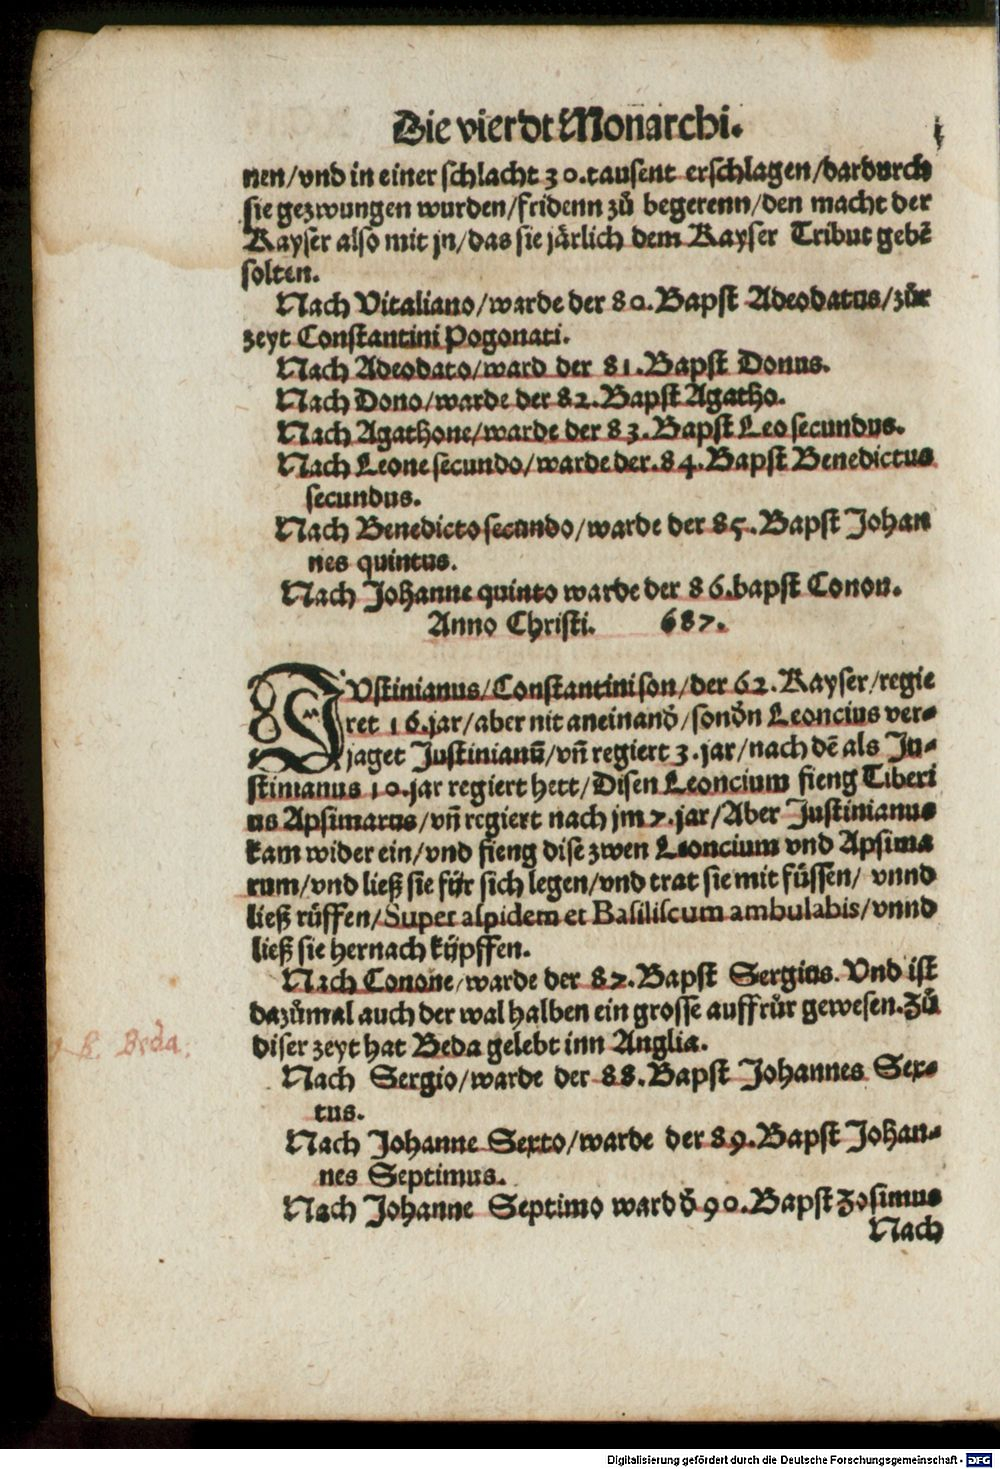 Die vierdt Monarchi.
nen/vnd in einer schlacht 30.tausent erschlagen/dardurch
sie gezwungen wurden/fridenn zů begerenn/den macht der
Kayser also mit jn/das sie järlich dem Kayser Tribut gebē
solten.
Nach Vitaliano/warde der 80.Bapst Adeodatus/zůr
zeyt Constantini Pogonati.
Nach Adeodato/ward der 81.Bapst Donus.
Nach Dono/warde der 82.Bapst Agatho.
Nach Agathone/warde der 83.Bapst Leo secundus.
Nach Leone secundo/warde der.84.Bapst Benedictus
secundus.
Nach Benedicto secundo/warde der 85.Bapst Johan
nes quintus.
Nach Johanne quinto warde der 86.bapst Conon.
Anno Christi. 687.
JVstinianus/Constantini son/der 62.Kayser/regie
ret 16.jar/aber nit aneinand̄/sond̄n Leoncius ver-
jaget Justinianū/vn̄ regiert 3.jar/nach dē als Ju-
stinianus 10.jar regiert hett/Disen Leoncium fieng Tiberi
us Apsimarus/vn̄ regiert nach jm 7.jar/Aber Justinianus
kam wider ein/vnd fieng dise zwen Leoncium vnd Apsima
rum/vnd ließ sie für sich legen/vnd trat sie mit füssen/ vnnd
ließ rüffen/Super aspidem et Basiliscum ambulabis/vnnd
ließ sie hernach küpffen.
Nach Conone/warde der 87.Bapst Sergius. Vnd ist
dazůmal auch der wal halben ein grosse auffrůr gewesen.Zů
diser zeyt hat Beda gelebt inn Anglia.
Beda.
Nach Sergio/warde der 88.Bapst Johannes Sex-
tus.
Nach Johanne Sexto/warde der 89.Bapst Johan-
nes Septimus.
Nach Johanne Septimo ward d̄ 90.Bapst Zosimus
Nach
Digitalisierung gefördert durch die Deutsche Forschungsgemeinschaft - DFG